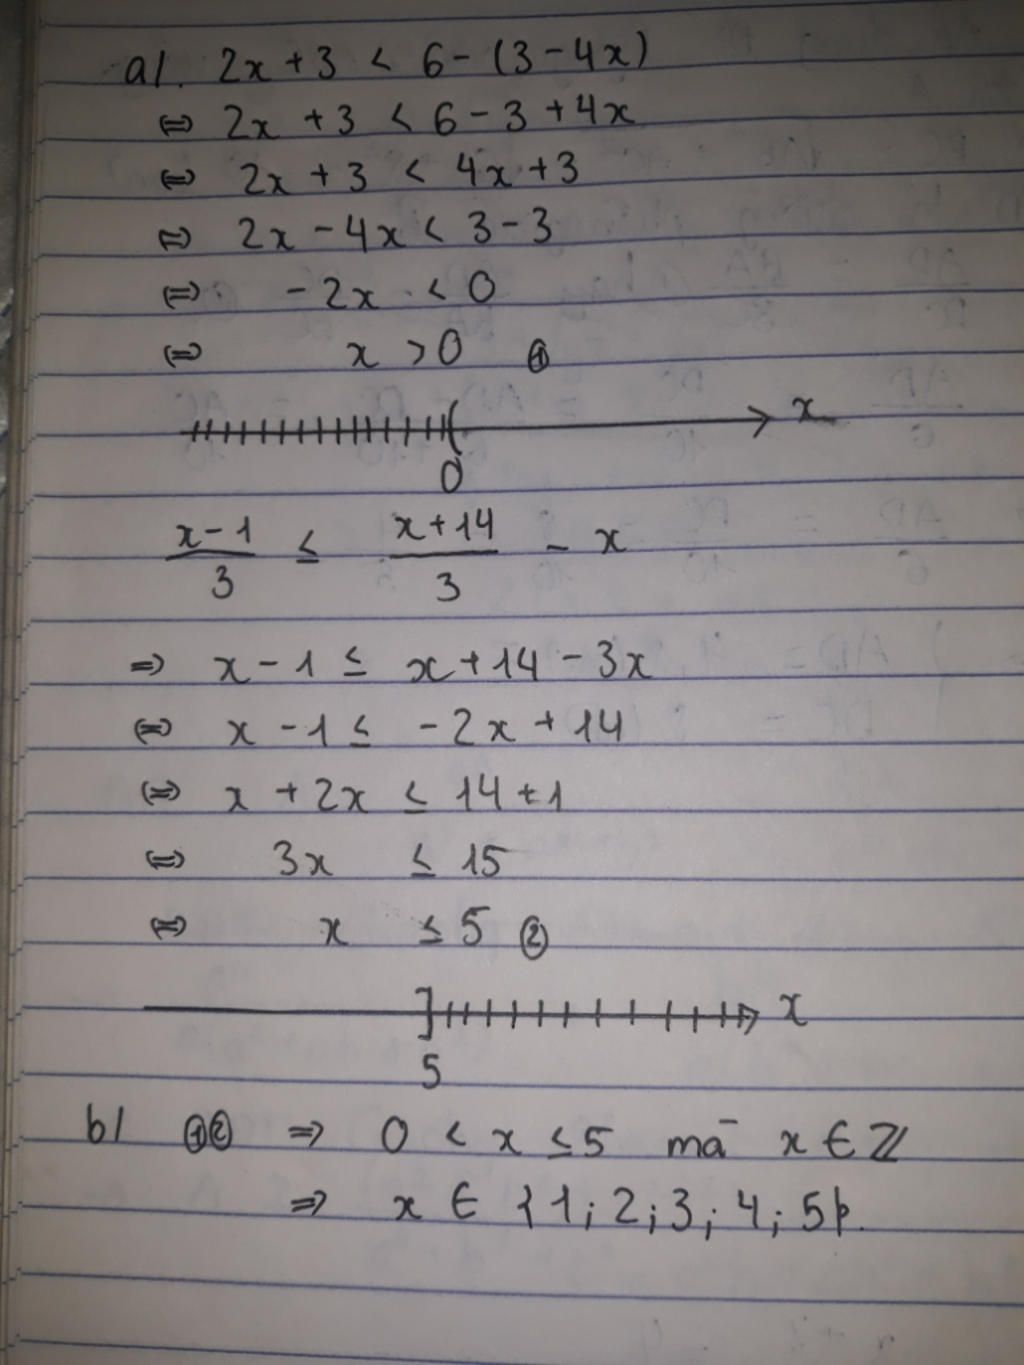 a/. 2x + 3 < 6 - (3 - 4x)
⇔ 2x + 3 < 6 - 3 + 4x
⇔ 2x + 3 < 4x + 3
⇔ 2x - 4x < 3 - 3
⇔ - 2x < 0
⇔ x > 0 ①
x
0
(x - 1)/3 ≤ (x + 14)/3 - x
⇒ x - 1 ≤ x + 14 - 3x
⇔ x - 1 ≤ - 2x + 14
⇔ x + 2x ≤ 14 + 1
⇔ 3x ≤ 15
⇔ x ≤ 5 ②
x
5
b/ ①② ⇒ 0 < x ≤ 5 mà x ∈ ℤ
⇒ x ∈ {1; 2; 3; 4; 5}.